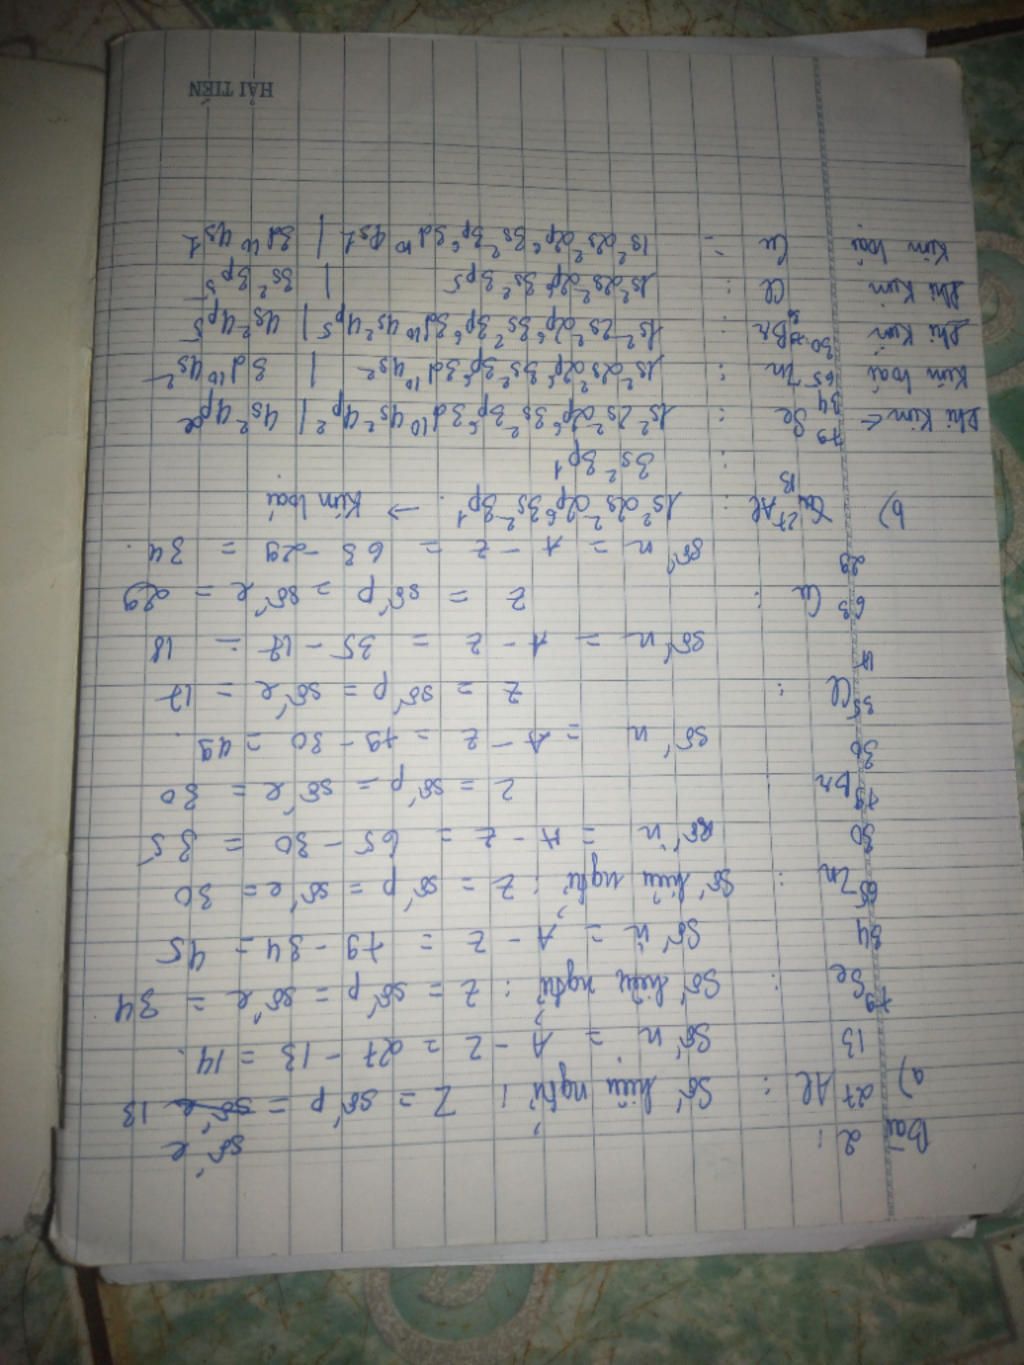 Bài 2:
số e
a) 27 Al : Số hiệu ngtử : Z = số p = số e 13
13 Số n = A - Z = 27 - 13 = 14.
79 Se : Số hiệu ngtử : Z = số p = số e = 34
34 Số n = A - Z = 79 - 34 = 45
65 Zn : Số hiệu ngtử : Z = số p = số e = 30
30 số n = A - Z = 65 - 30 = 35
79 Br Z = số p = số e = 30
30 số n = A - Z = 79 - 30 = 49.
35 Cl : Z = số p = số e = 17
17 số n = A - Z = 35 - 17 = 18
63 Cu : Z = số p = số e = 29
29 số n = A - Z = 63 - 29 = 34.
b) 27 Al : 1s² 2s² 2p⁶ 3s² 3p¹ → Kim loại
13 : 3s² 3p¹
Phi Kim ← 79 Se : 1s² 2s² 2p⁶ 3s² 3p⁶ 3d¹⁰ 4s² 4p² | 4s² 4p²
34
Kim loại 65 Zn : 1s² 2s² 2p⁶ 3s² 3p⁶ 3d¹⁰ 4s² | 3d¹⁰ 4s²
30
Phi Kim Br : 1s² 2s² 2p⁶ 3s² 3p⁶ 3d¹⁰ 4s² 4p⁵ | 4s² 4p⁵
Phi Kim Cl : 1s² 2s² 2p⁶ 3s² 3p⁵ | 3s² 3p⁵
Kim loại Cu : 1s² 2s² 2p⁶ 3s² 3p⁶ 3d¹⁰ 4s1 | 3d¹⁰ 4s1
HẢI TIẾN